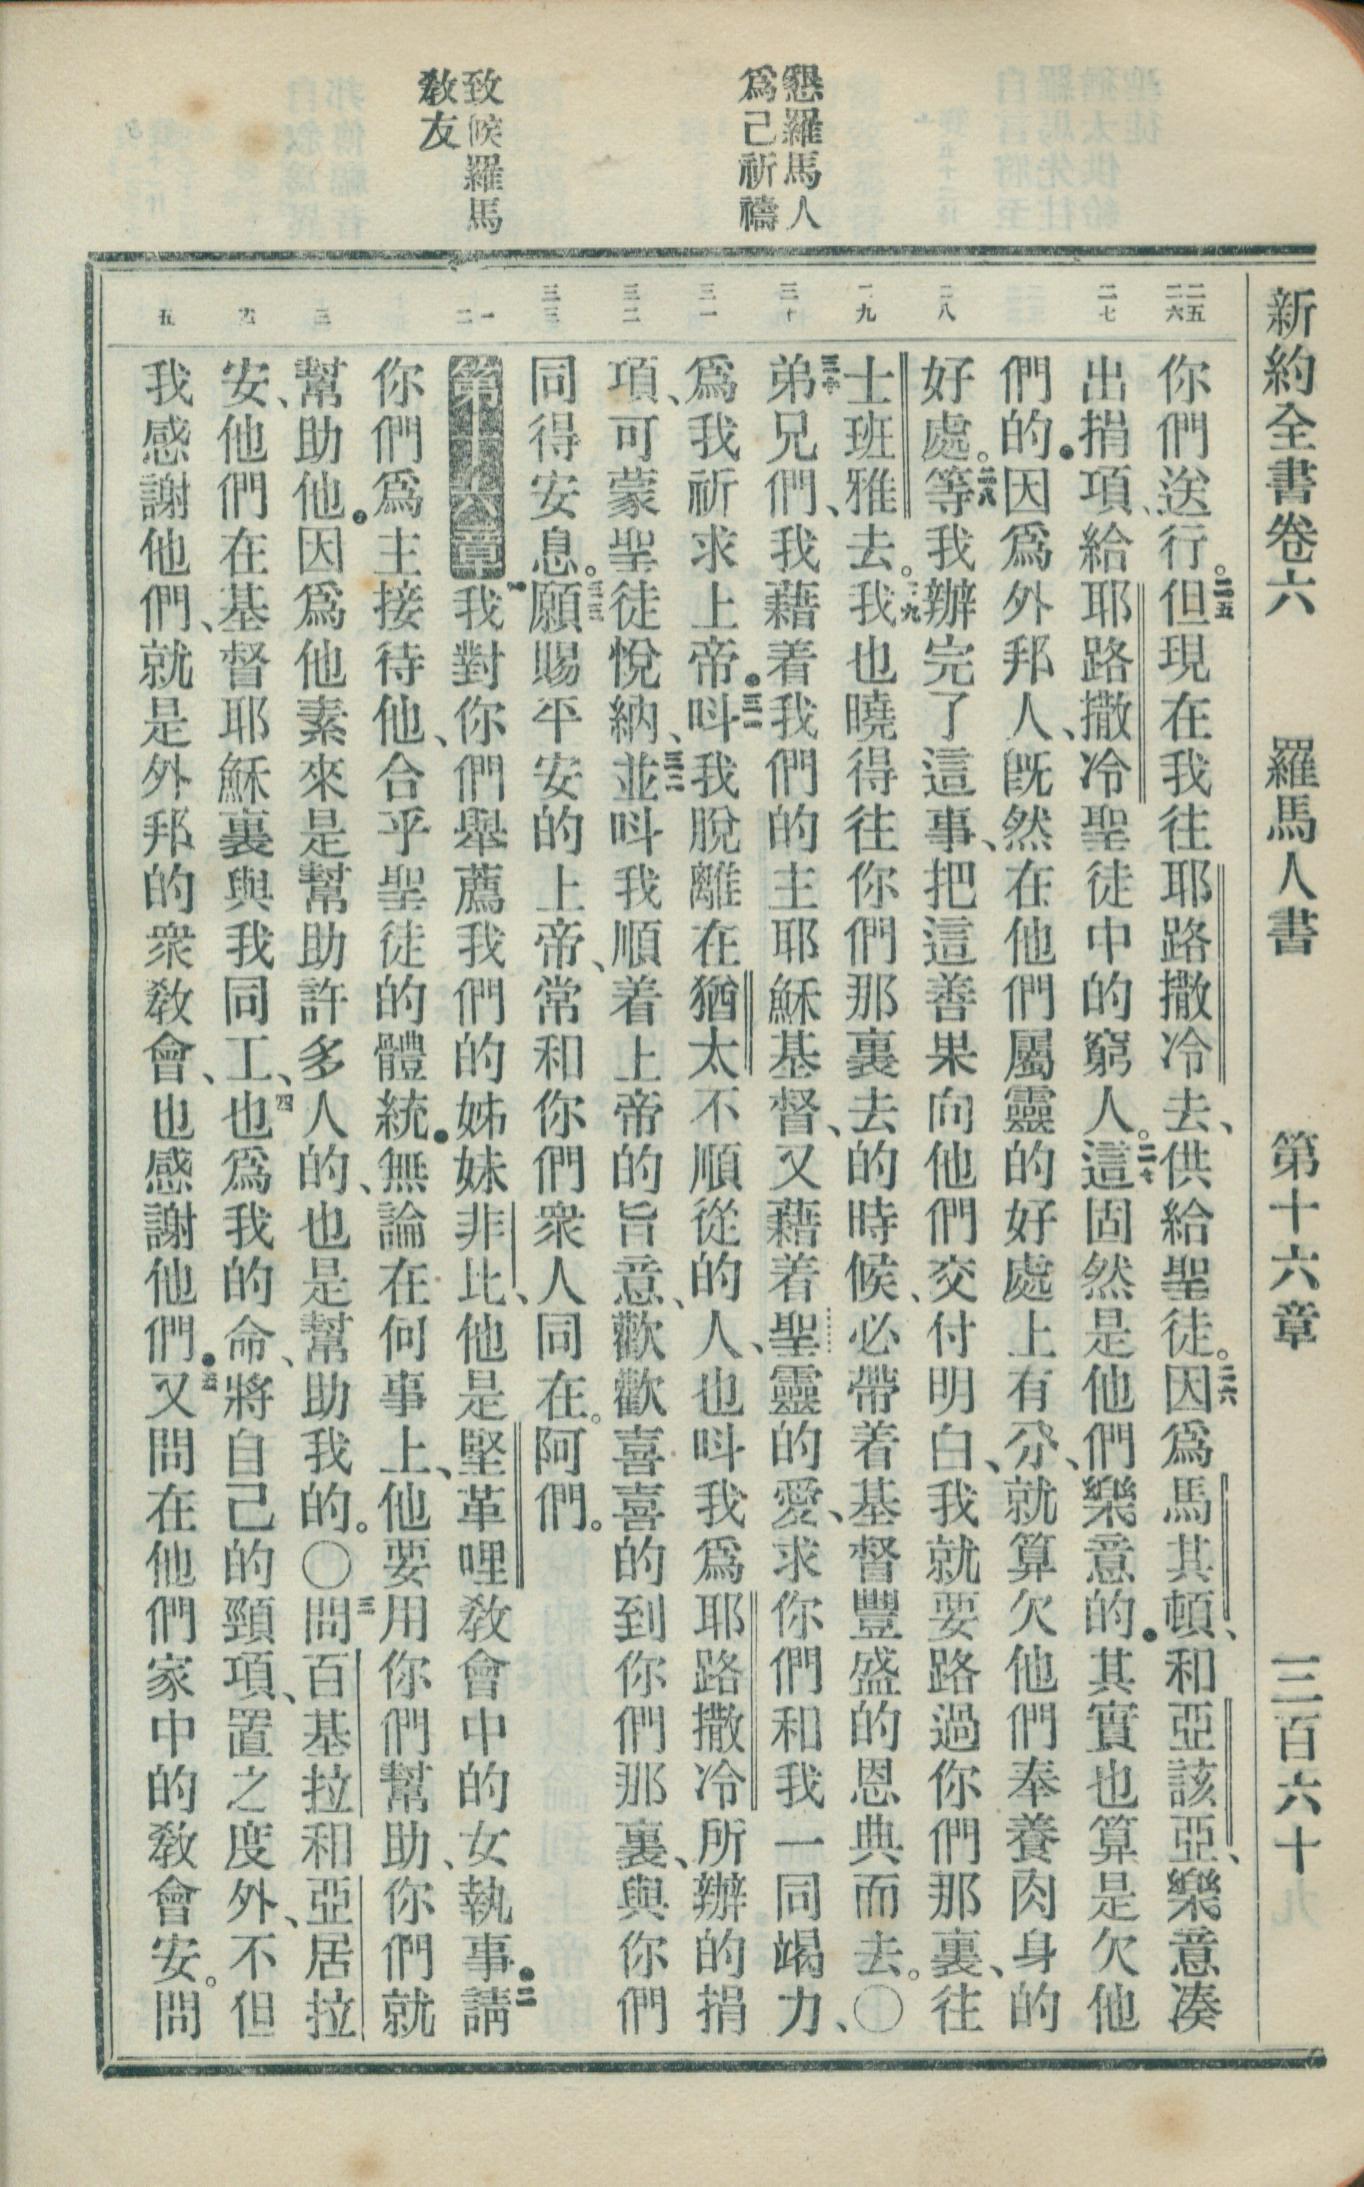 新約全書卷六 羅馬人書 第十六章 三百六十九
懇羅馬人
爲己祈禱
致候羅馬
教友
二五
二六
二七
二八
二九
三十
三一
三二
三三
一
二
三
四
五
你們送行。二五但現在我往耶路撒冷去、供給聖徒。二六因爲馬其頓、和亞該亞、樂意湊
出捐項、給耶路撒冷聖徒中的窮人。二七這固然是他們樂意的・其實也算是欠他
們的・因爲外邦人、旣然在他們屬靈的好處上有分、就算欠他們奉養肉身的
好處。二八等我辦完了這事、把這善果向他們交付明白、我就要路過你們那裏、往
士班雅去。二九我也曉得往你們那裏去的時候、必帶着基督豐盛的恩典而去。〇
三十弟兄們、我藉着我們的主耶穌基督、又藉着聖靈的愛、求你們和我一同竭力、
爲我祈求上帝・三一呌我脫離在猶太不順從的人、也呌我爲耶路撒冷所辦的捐
項、可蒙聖徒悅納、三二並呌我順着上帝的旨意、歡歡喜喜的到你們那裏、與你們
同得安息。三三願賜平安的上帝、常和你們衆人同在。阿們。
第十六章 一我對你們舉薦我們的姊妹非比、他是堅革哩教會中的女執事・二請
你們爲主接待他、合乎聖徒的體統・無論在何事上、他要用你們幫助、你們就
幫助他・因爲他素來是幫助許多人的、也是幫助我的。〇三問百基拉和亞居拉
安、他們在基督耶穌裏與我同工、四也爲我的命、將自己的頸項、置之度外、不但
我感謝他們、就是外邦的衆教會、也感謝他們・五又問在他們家中的教會安。問